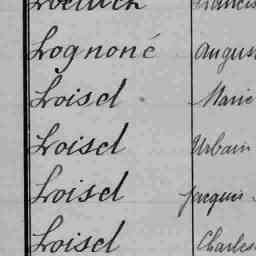 Lognoné Augus
Loisel Marie
Loisel Urbain
Loisel Jacques
Loisel Charles